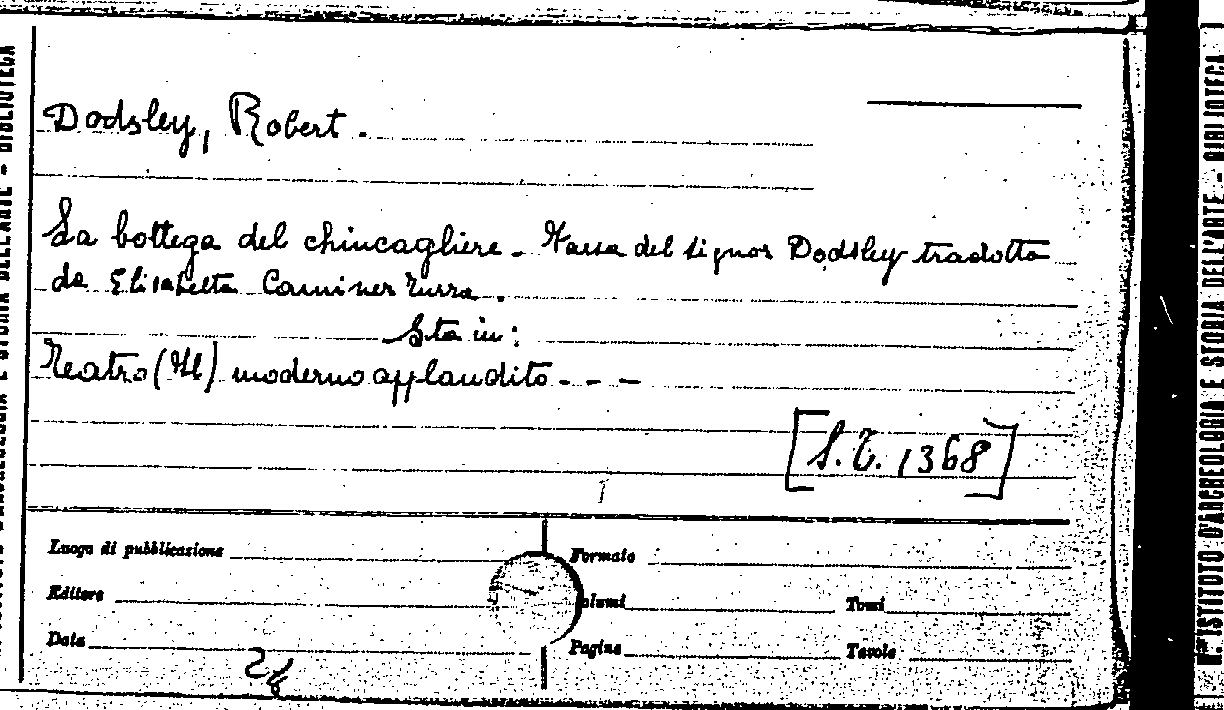 Dodsley, Robert.
La bottega del chincagliere. Farsa del signor Dodsley tradotta
da Elisabetta Caminer Turra.
Sta in:
Teatro (Il) moderno applaudito - - -
[S.T. 1368]
Luogo di pubblicazione
Formato
Editore
Volumi
Tomi
Data
Pagine
Tavole
R. ISTITUTO D'ARCHEOLOGIA E STORIA DELL'ARTE - BIBLIOTECA